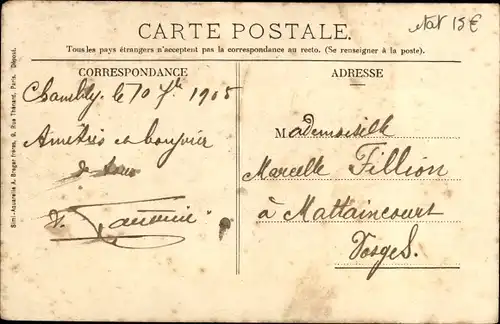 CARTE POSTALE.
état 15€
Tous les pays étrangers n'acceptent pas la correspondance au recto. (Se renseigner à la poste).
CORRESPONDANCE
Chambly, le 10 7bre 1905
Amitiés et bonjour
de tous
ADRESSE
Mademoiselle
Marcelle Fillion
à Mattaincourt
Vosges.
Simi-Aquarelle A. Breger frères, 9, Rue Thénard, Paris. Déposé.